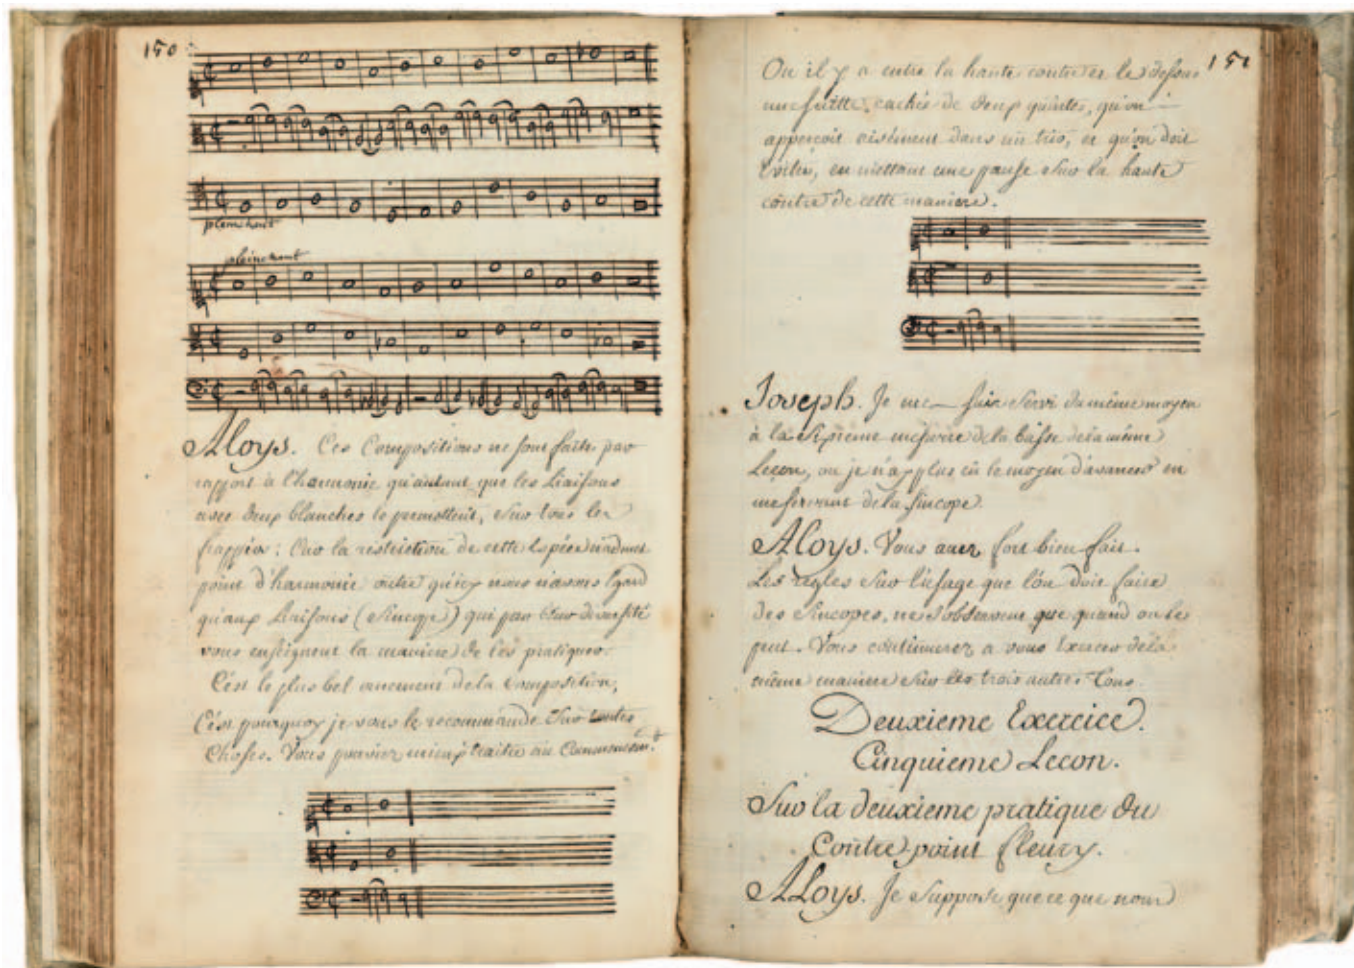 150
plein chant
plein chant
Aloys. Ces Compositions ne sont faites par
rapport à l'harmonie qu'autant que les Liaisons
avec deux blanches le permettent, Sur tous les
frappés: Car la restriction de cette Espéce n'admet
point d'harmonie outre qu'icy nous n'avons Egard
qu'aux Liaisons (Sincope) qui par leur diversité
vous enseignent la maniere de les pratiquer.
C'est le plus bel ornement de la Composition,
C'est pourquoy je vous le recommande Sur toutes
Choses. Vous pouviez mieux traiter au Commencem.t
151
Ou il y a entre la haute contre et le dessus
une suitte cachée de deux quintes, qu'on
apperçoit aisément dans un trio, et qu'on doit
Eviter, en mettant une pause Sur la haute
contre de cette maniere.
Joseph. Je me suis Servi du même moyen
à la Septieme mesure de la basse de la même
Leçon, ou je n'ay plus eû le moyen d'avancer en
me servant de la sincope.
Aloys. Vous avez fort bien fait.
Les regles Sur l'usage que l'on doit faire
des Sincopes, ne s'observent que quand on le
peut. Vous continuerez a vous Exercer de la
même maniere Sur les trois autres tons.
Deuxieme Exercice.
Cinquieme Lecon.
Sur la deuxieme pratique du
Contre point fleury.
Aloys. Je Suppose que ce que nous